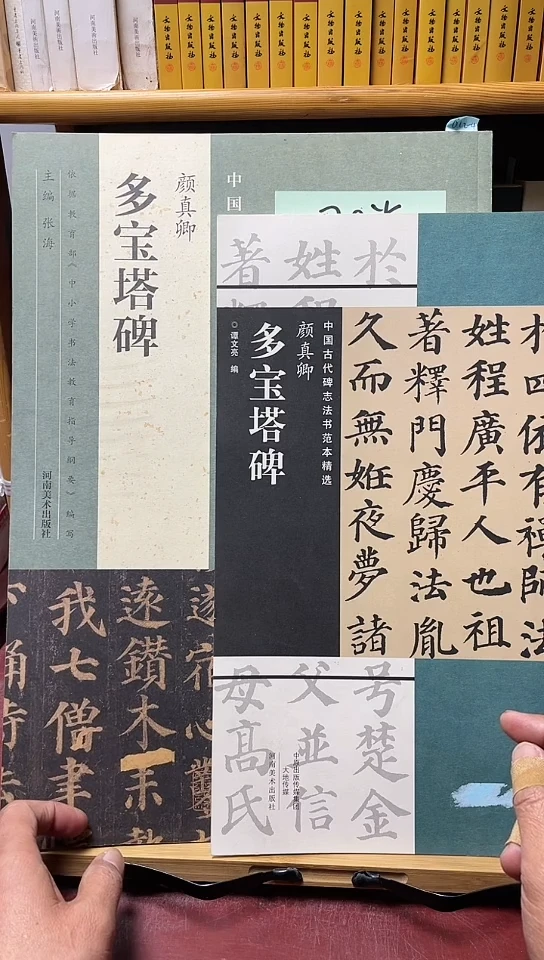 河南美术出版社
河南美术出版社
河南美术出版社
文物出版社
文物出版社
文物出版社
文物出版社
文物出版社
文物出版社
文物出版社
文物出版社
文物出版社
文物出版社
文物出版社
文物出版社
颜真卿
多宝塔碑
中国
依据教育部《中小学书法教育指导纲要》编写
主编 张海
河南美术出版社
我七僧聿
远鑽木
於
姓
著
中国古代碑志法书范本精选
颜真卿
多宝塔碑
◎谭文亮 编
姓程廣平人也祖
著釋門慶歸法胤
久而無姙夜夢諸
号楚金
父並信
母高氏
中原出版传媒集团
大地传媒
河南美术出版社